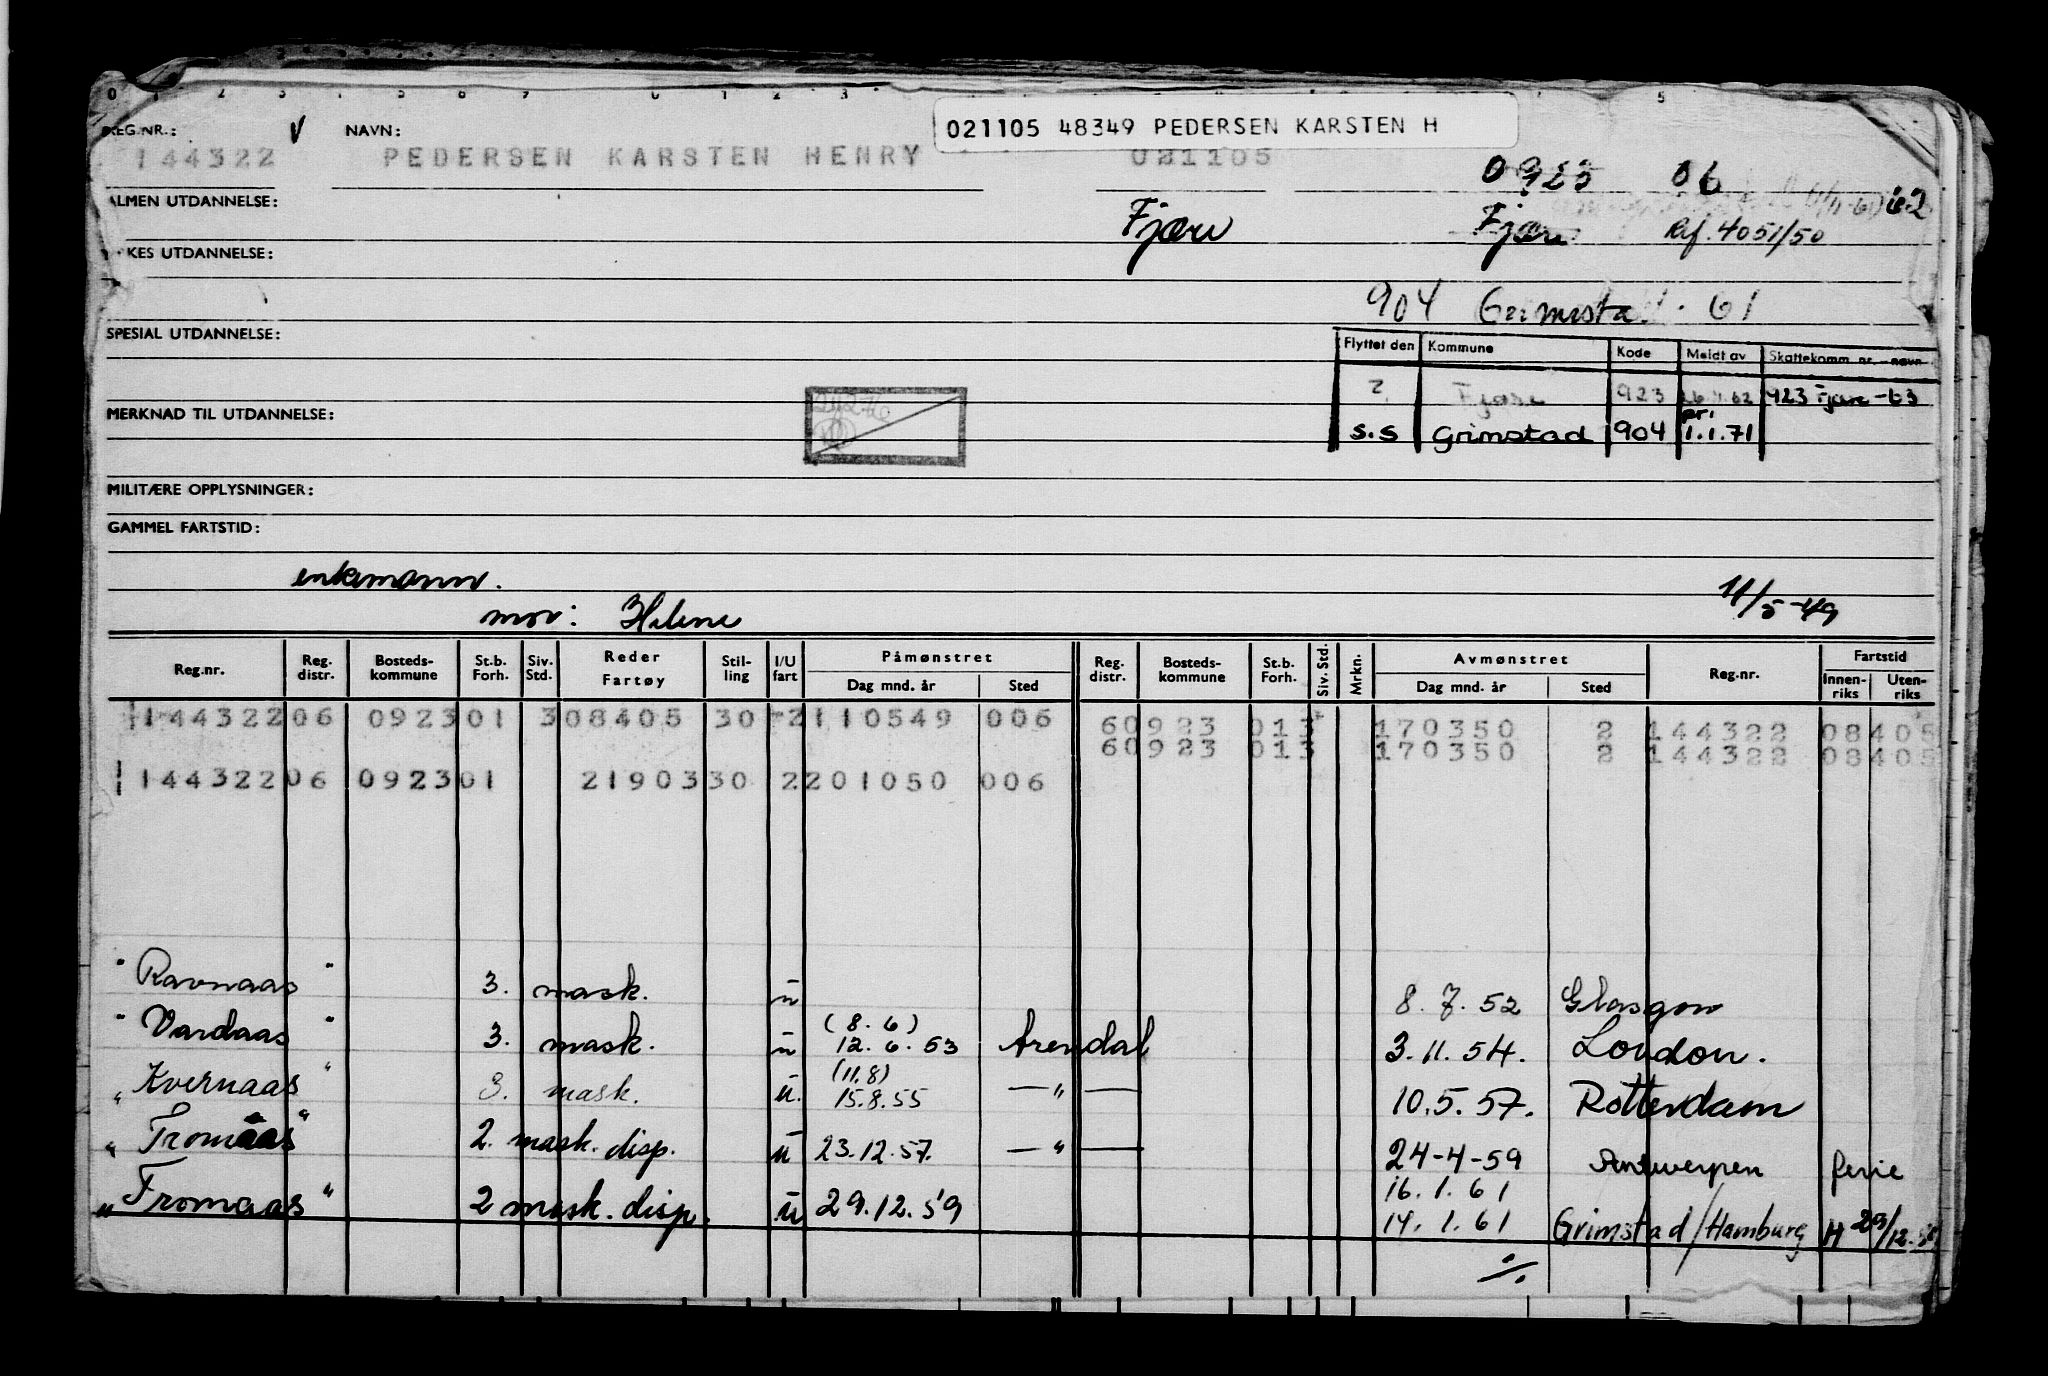 021105 48349 PEDERSEN KARSTEN H
REG.NR.: V NAVN:
144322 PEDERSEN KARSTEN HENRY 021105
0923 06
ALMEN UTDANNELSE: 62
Fjære Fjære Ref. 4051/50
YRKES UTDANNELSE:
904 Grimstad 61
SPESIAL UTDANNELSE:
Flyttet den Kommune Kode Meldt av Skattekomm. nr. navn
Z Fjære 923 26.11.62 923 Fjære -63
MERKNAD TIL UTDANNELSE:
pr.
s.s Grimstad 904 1.1.71
MILITÆRE OPPLYSNINGER:
GAMMEL FARTSTID:
enkemann.
mor: Helene 11/5-49
Reg.nr. Reg. distr. Bosteds-kommune St.b. Forh. Siv. Std. Reder Fartøy Stil-ling I/U fart Påmønstret Dag mnd. år Sted Reg. distr. Bosteds-kommune St.b. Forh. Siv. Std. Mrkn. Avmønstret Dag mnd. år Sted Reg.nr. Fartstid Innen-riks Uten-riks
144322 06 0923 01 3 08405 30 2 110549 006 60923 013 170350 2 144322 08405
60923 013 170350 2 144322 08405
144322 06 0923 01 21903 30 2 201050 006
" Ravnaas " 3. mask. u 8.7.52 Glasgow
" Vardaas " 3. mask. u (8.6) 12.6.53 Arendal 3.11.54. London.
" Kvernaas " 3. mask. u. (11.8) 15.8.55 — " — 10.5.57. Rotterdam
" Tromaas " 2. mask. disp. u 23.12.57. — " — 24-4-59 Antwerpen ferie
16.1.61
" Fromaas " 2 mask. disp. u 29.12.59 14.1.61 Grimstad/Hamburg H 29/12.